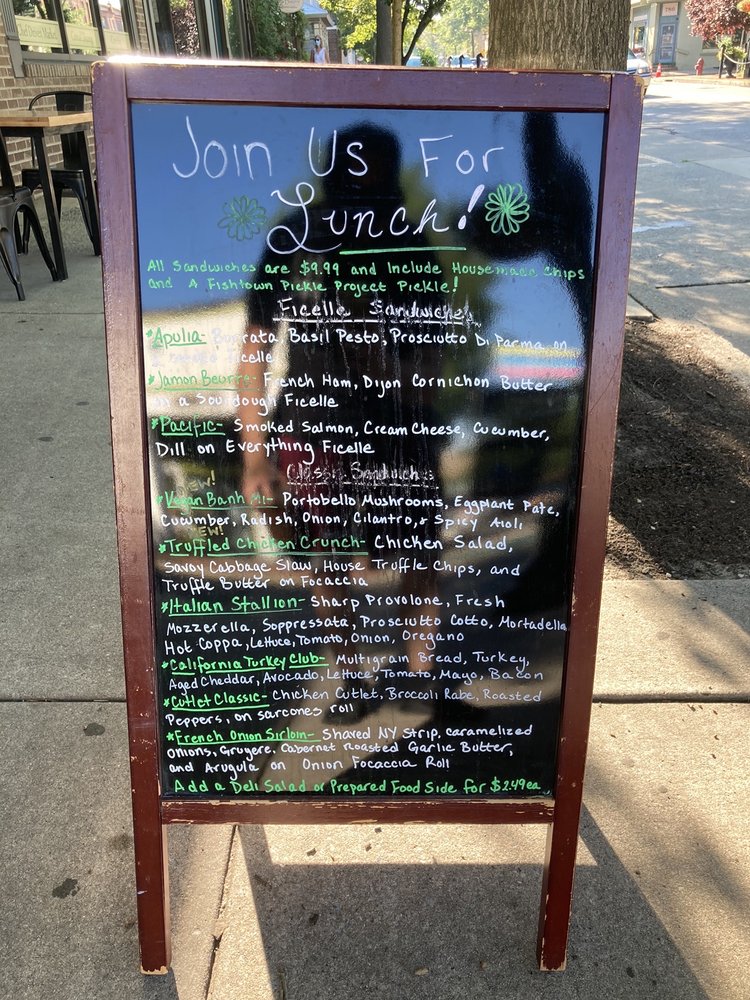 Join Us For
Lunch!
All Sandwiches are $9.99 and Include Housemade Chips
and A Fishtown Pickle Project Pickle!
Ficelle Sandwiches
*Apulia- Burrata, Basil Pesto, Prosciutto Di Parma on
Ficelle
*Jamon Beurre- French Ham, Dijon Cornichon Butter
on a Sourdough Ficelle
*Pacific- Smoked Salmon, Cream Cheese, Cucumber,
Dill on Everything Ficelle
Classic Sandwiches
NEW!
*Vegan Banh Mi- Portobello Mushrooms, Eggplant Pate,
Cucumber, Radish, Onion, Cilantro, & Spicy Aioli
NEW!
*Truffled Chicken Crunch- Chicken Salad,
Savoy Cabbage Slaw, House Truffle Chips, and
Truffle Butter on Focaccia
*Italian Stallion- Sharp Provolone, Fresh
Mozzerella, Soppressata, Prosciutto Cotto, Mortadella
Hot Coppa, Lettuce, Tomato, Onion, Oregano
*California Turkey Club- Multigrain Bread, Turkey,
Aged Cheddar, Avocado, Lettuce, Tomato, Mayo, Bacon
*Cutlet Classic- Chicken Cutlet, Broccoli Rabe, Roasted
Peppers, on sarcones roll
*French Onion Sirloin- Shaved NY Strip, caramelized
onions, Gruyere, Cabernet Roasted Garlic Butter,
and Arugula on Onion Focaccia Roll
Add a Deli Salad or Prepared Food Side for $2.49ea